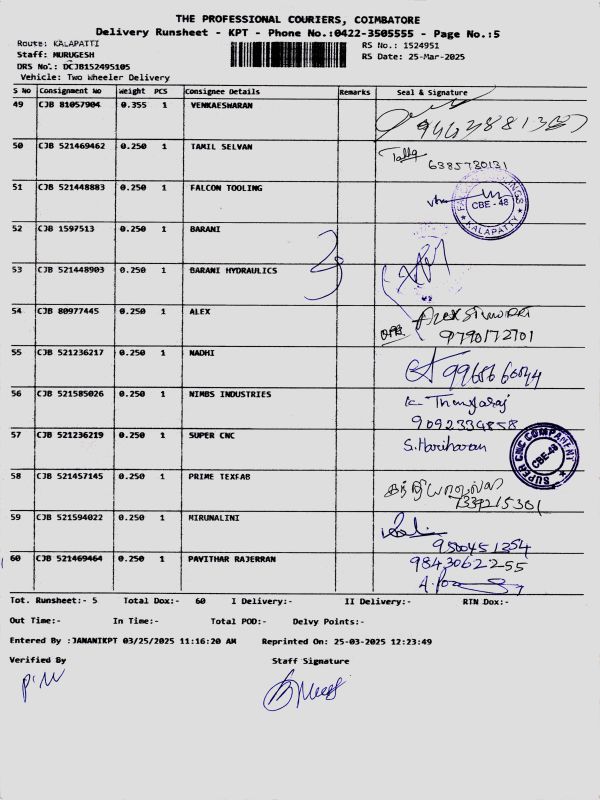 THE PROFESSIONAL COURIERS, COIMBATORE
Delivery Runsheet - KPT - Phone No.:0422-3505555 - Page No.:5
Route: KALAPATTI
Staff: MURUGESH
DRS No.: DCJB152495105
Vehicle: Two Wheeler Delivery
RS No.: 1524951
RS Date: 25-Mar-2025
S No Consignment No Weight PCS Consignee Details Remarks Seal & Signature
49 CJB 81057904 0.355 1 VENKAESHARAN
50 CJB 521469462 0.250 1 TAMIL SELVAN
6385730131
51 CJB 521448883 0.250 1 FALCON TOOLING
CBE - 48
KALAPATTY
52 CJB 1597513 0.250 1 BARANI
53 CJB 521448903 0.250 1 BARANI HYDRAULICS
54 CJB 80977445 0.250 1 ALEX
9790172701
55 CJB 521236217 0.250 1 NADHI
56 CJB 521585026 0.250 1 NIMBS INDUSTRIES
K. Thangaraj
9092334858
57 CJB 521236219 0.250 1 SUPER CNC
S. Hariharan
SUPER CNC COMPANENT
CBE-48
58 CJB 521457145 0.250 1 PRIME TEXFAB
7339215301
59 CJB 521594022 0.250 1 MIRUNALINI
9500451354
60 CJB 521469464 0.250 1 PAVITHAR RAJERRAN
9843062255
Tot. Runsheet:- 5 Total Dox:- 60 I Delivery:- II Delivery:- RTN Dox:-
Out Time:- In Time:- Total POD:- Delvy Points:-
Entered By :JANANIKPT 03/25/2025 11:16:20 AM Reprinted On: 25-03-2025 12:23:49
Verified By Staff Signature